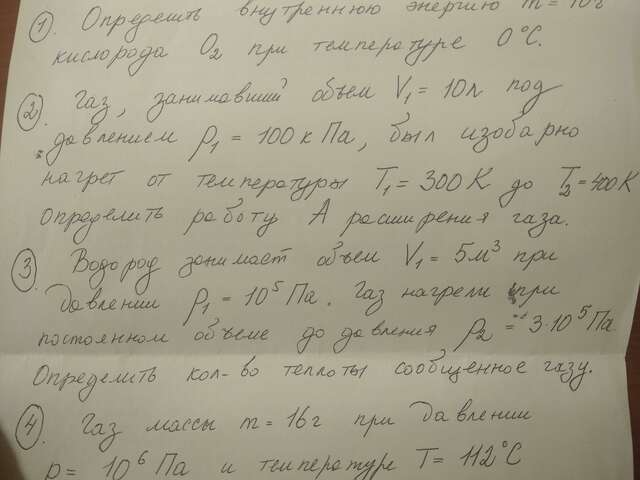 ① Определить внутреннюю энергию m = 10г
кислорода O₂ при температуре 0°С.
② Газ, занимавший объем V₁ = 10л под
давлением p₁ = 100 кПа, был изобарно
нагрет от температуры T₁ = 300К до T₂ = 400К
Определить работу A расширения газа.
③ Водород занимает объем V₁ = 5м³ при
давлении p₁ = 10⁵ Па. Газ нагрели при
постоянном объеме до давления p₂ = 3·10⁵ Па
Определить кол-во теплоты сообщенное газу.
④ Газ массы m = 16г при давлении
p = 10⁶ Па и температуре T = 112°С